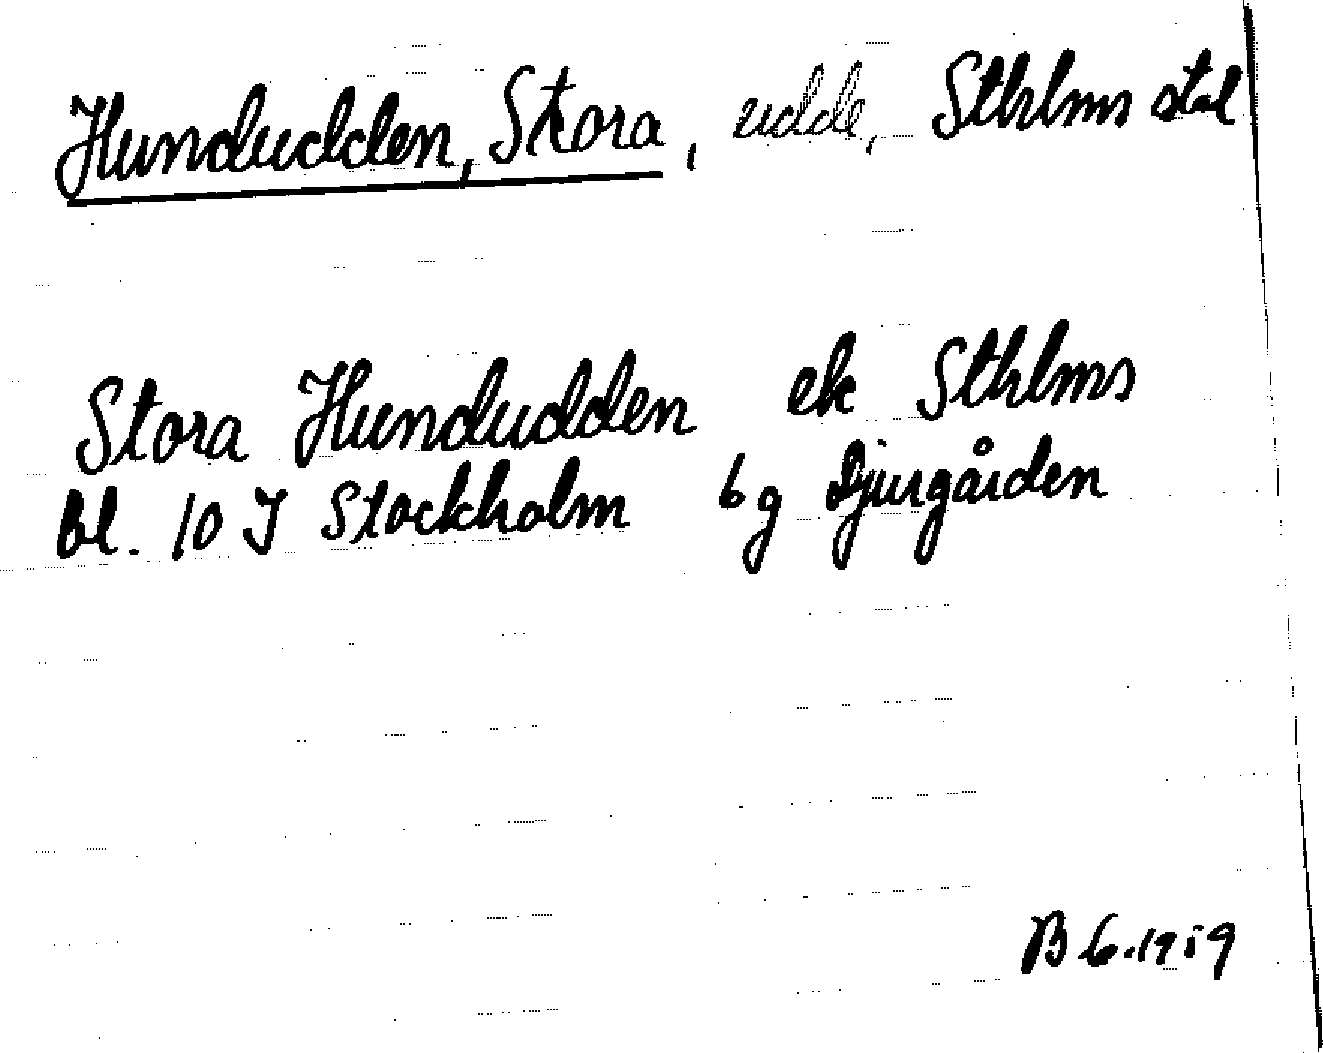 Hundudden, Stora, udde, Sthlms stad
Stora Hundudden ek Sthlms
Bl. 10 I Stockholm 6 g Djurgården
B 6.1959